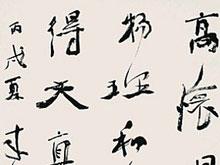 高懷
物理和
得天真
丙戌夏